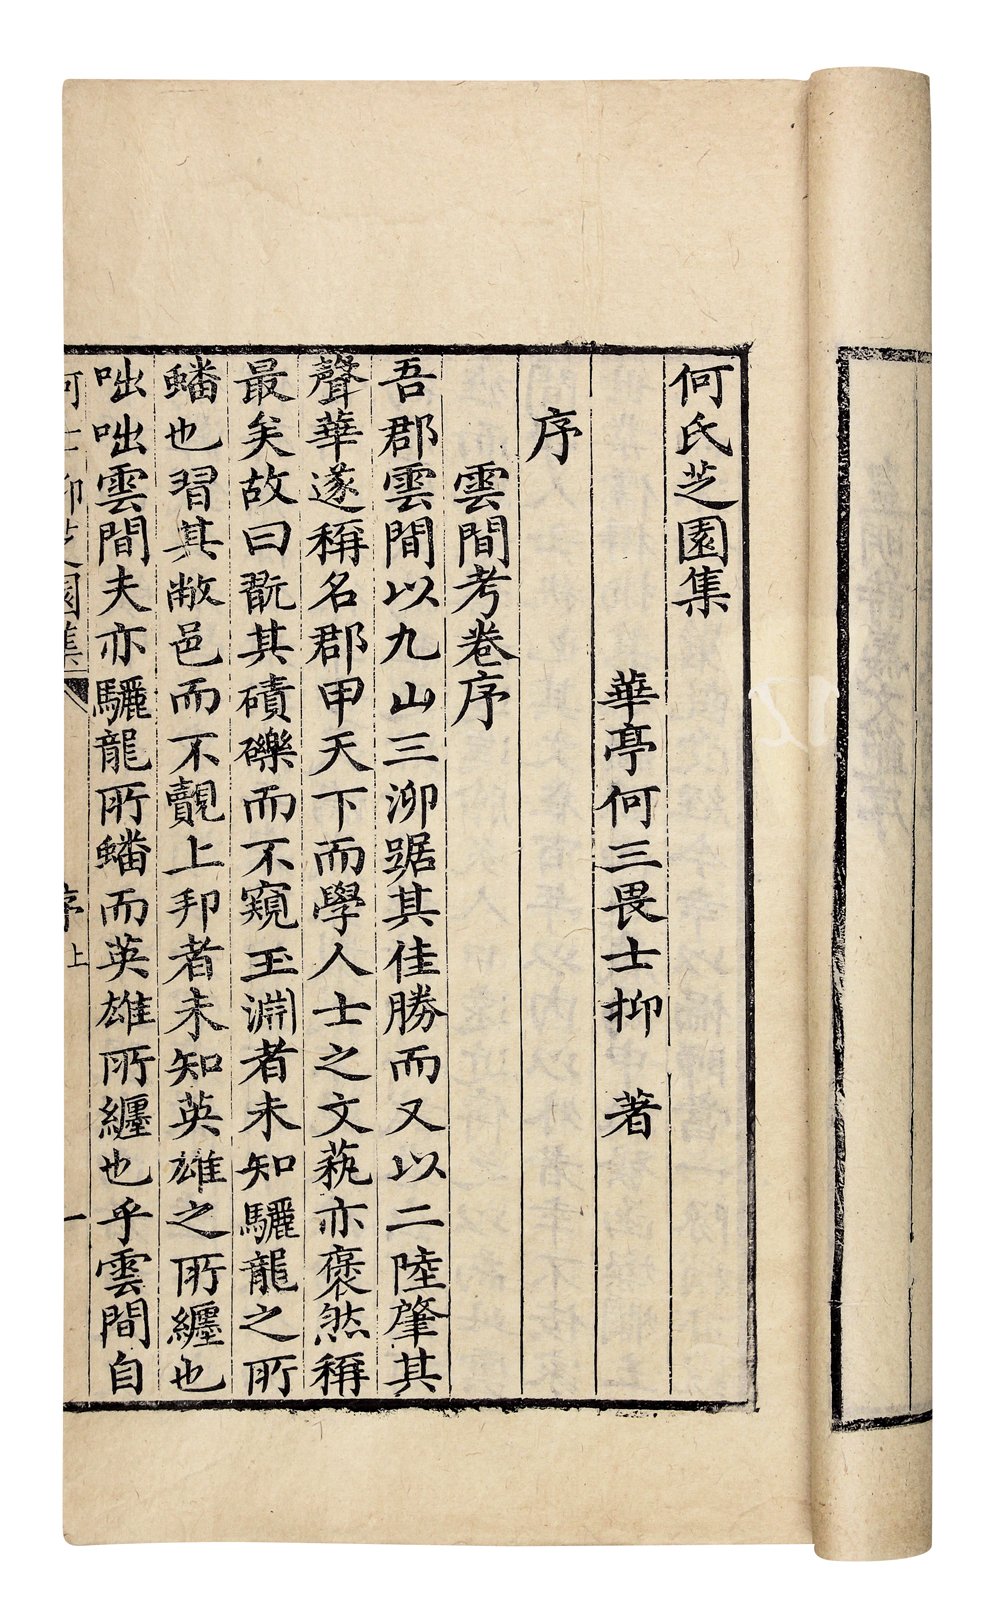 何氏芝園集
華亭何三畏士抑 著
序
雲間考卷序
吾郡雲間以九山三泖踞其佳勝而又以二陸肇其
聲華遂稱名郡甲天下而學人士之文蓺亦褎然稱
最矣故曰翫其磧礫而不窺玉淵者未知驪龍之所
蟠也習其敝邑而不覿上邦者未知英雄之所纏也
咄咄雲間夫亦驪龍所蟠而英雄所纏也乎雲間自
何士抑芝園集 序上 一